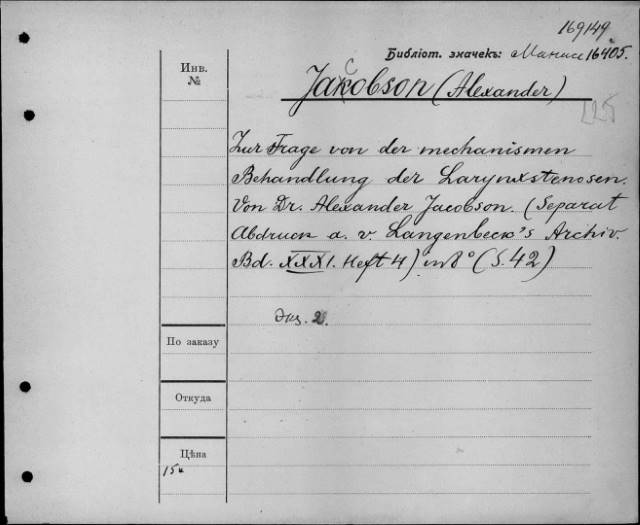 169149
Библіот. значекъ: Манас 16405.
Инв.
№
Jacobson (Alexander)
Zur Frage von der mechanismen
Behandlung der Larynxstenosen.
Von Dr. Alexander Jacobson. (Separat
Abdruck a. v. Langenbeck's Archiv.
Bd. XXXI. Heft 4) in 8° (S. 42)
Экз. 2.
По заказу
Откуда
Цѣна
15 к